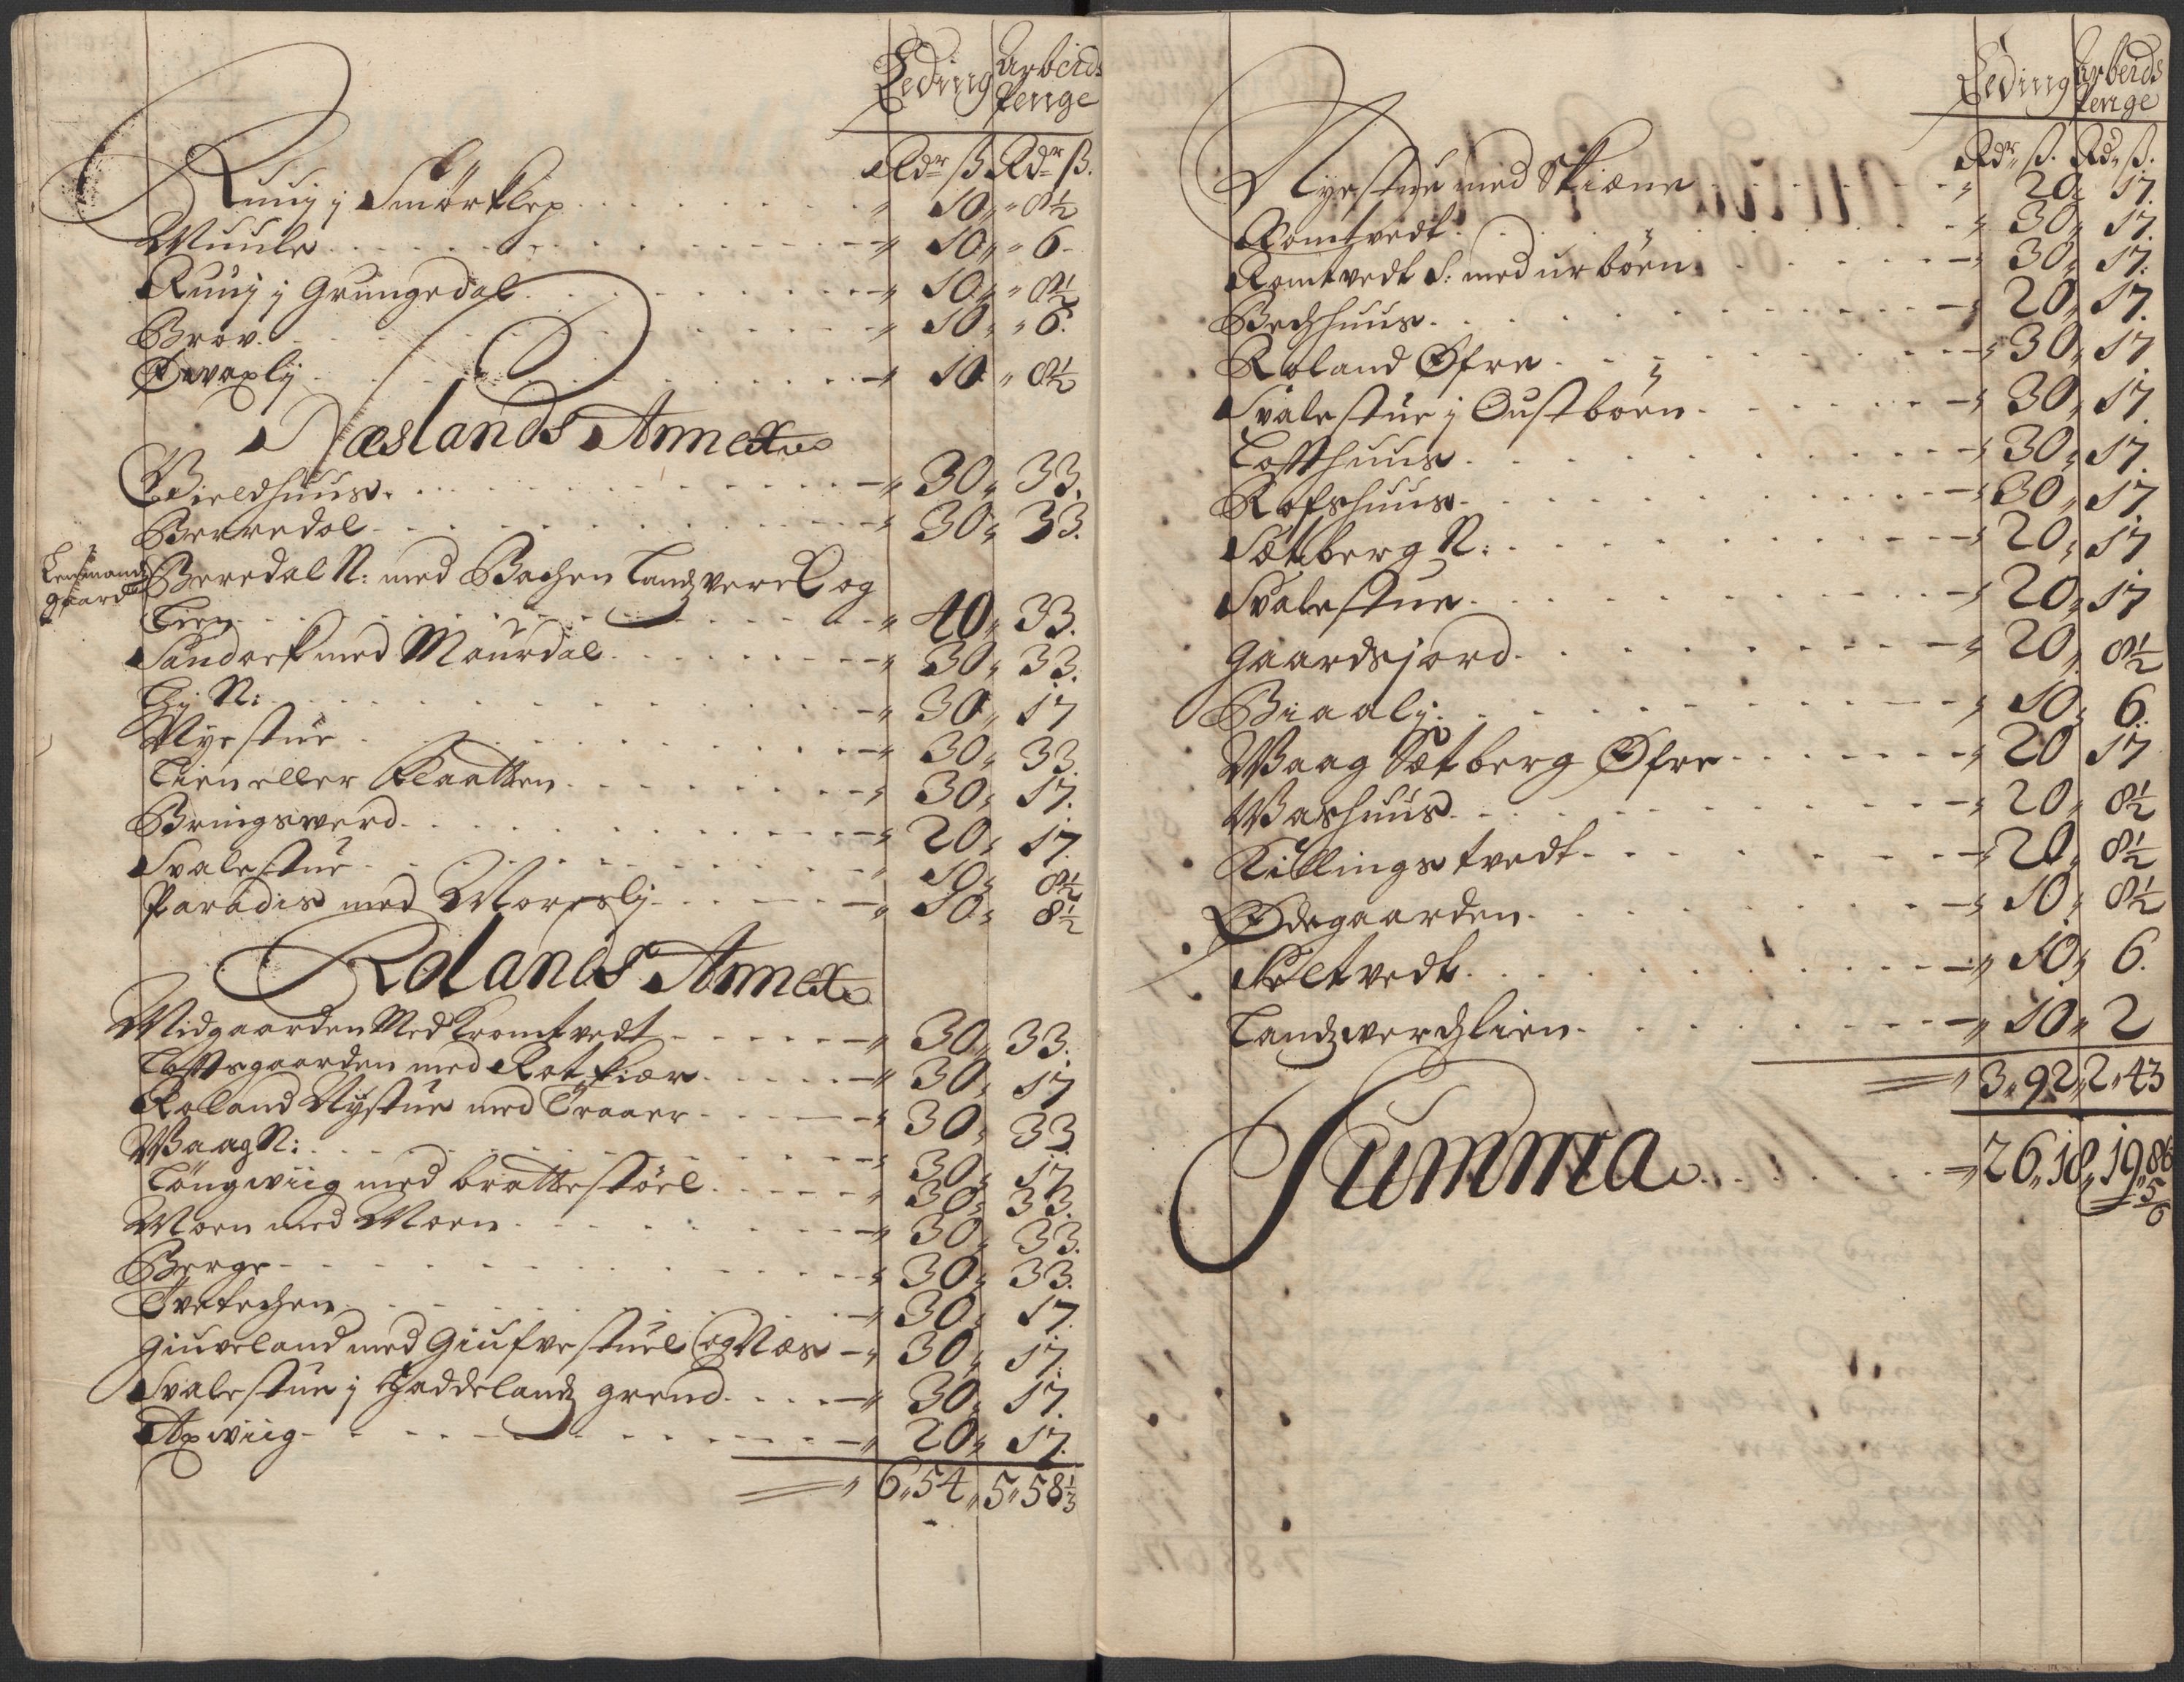 Leding Arbeids
Penge
Rdr ß Rdr ß.
Ruuj j Smörklep " 10 " " 8½
Muule " 10 " " 6
Ruuj j Grungedal " 10 " " 8½
Brov " 10 " " 6.
Svaxlj " 10 " 8½
Næslands Annex
Bieldhuus " 30 " 33.
Berredal " 30 " 33.
Lensmands
gaard
Beredal N: med Bachen Landzverck og
Lien " 40 " 33.
Sandock med Maurdal " 30 " 33.
Lj N: " 30 " 17
Nyestue " 30 " 33.
Lien eller Klaatten " 30 " 17.
Bringsverd " 20 " 17.
Svalestue " 10 " 8½
Paradis med Moreslj " 10 " 8½
Rolands Annex
Midgaarden Med Tromtvedt " 30 " 33.
Lofftsgaarden med Rotkiær " 30 " 17
Roland Nystue med Traaer " 30 " 33
Waag N: " 30 " 17
Löngwiig med brattestöel " 30 " 33.
Moen med Moen " 30 " 33.
Berge " 30 " 33.
Tvetechen " 30 " 17.
Giuveland med Giufvestuel og Næs " 30 " 17.
Svalestue j Haddelandz grend " 30 " 17.
Axwiig " 20 " 17.
6 " 54 " 5 " 58⅓
Leding Arbeids
Penge
Rdr ß. Rdr ß.
Nyestue med Skiæne " 20 " 17.
Romtvedt " 30 " 17.
Romtvedt S: med urböen " 30 " 17.
Bechhuus " 20 " 17.
Roland Øfre " 30 " 17
Svalestue j Oustböen " 30 " 17.
Loffthuus " 30 " 17.
Rofshuus " 30 " 17
Sætberg N: " 20 " 17
Svalestue " 20 " 17
Gaardsjord " 20 " 8½
Biaalj " 10 " 6
Waag Sætberg Øfre " 20 17
Washuus " 20 " 8½
Killingstvedt " 20 " 8½
Ødegaarden " 10 " 8½
Sletvedt " 10 " 6.
Landzwerchlien " 10 " 2
" 3 " 92 " 2 " 43
Summa " 26 " 18 " 19 " 86
5/6